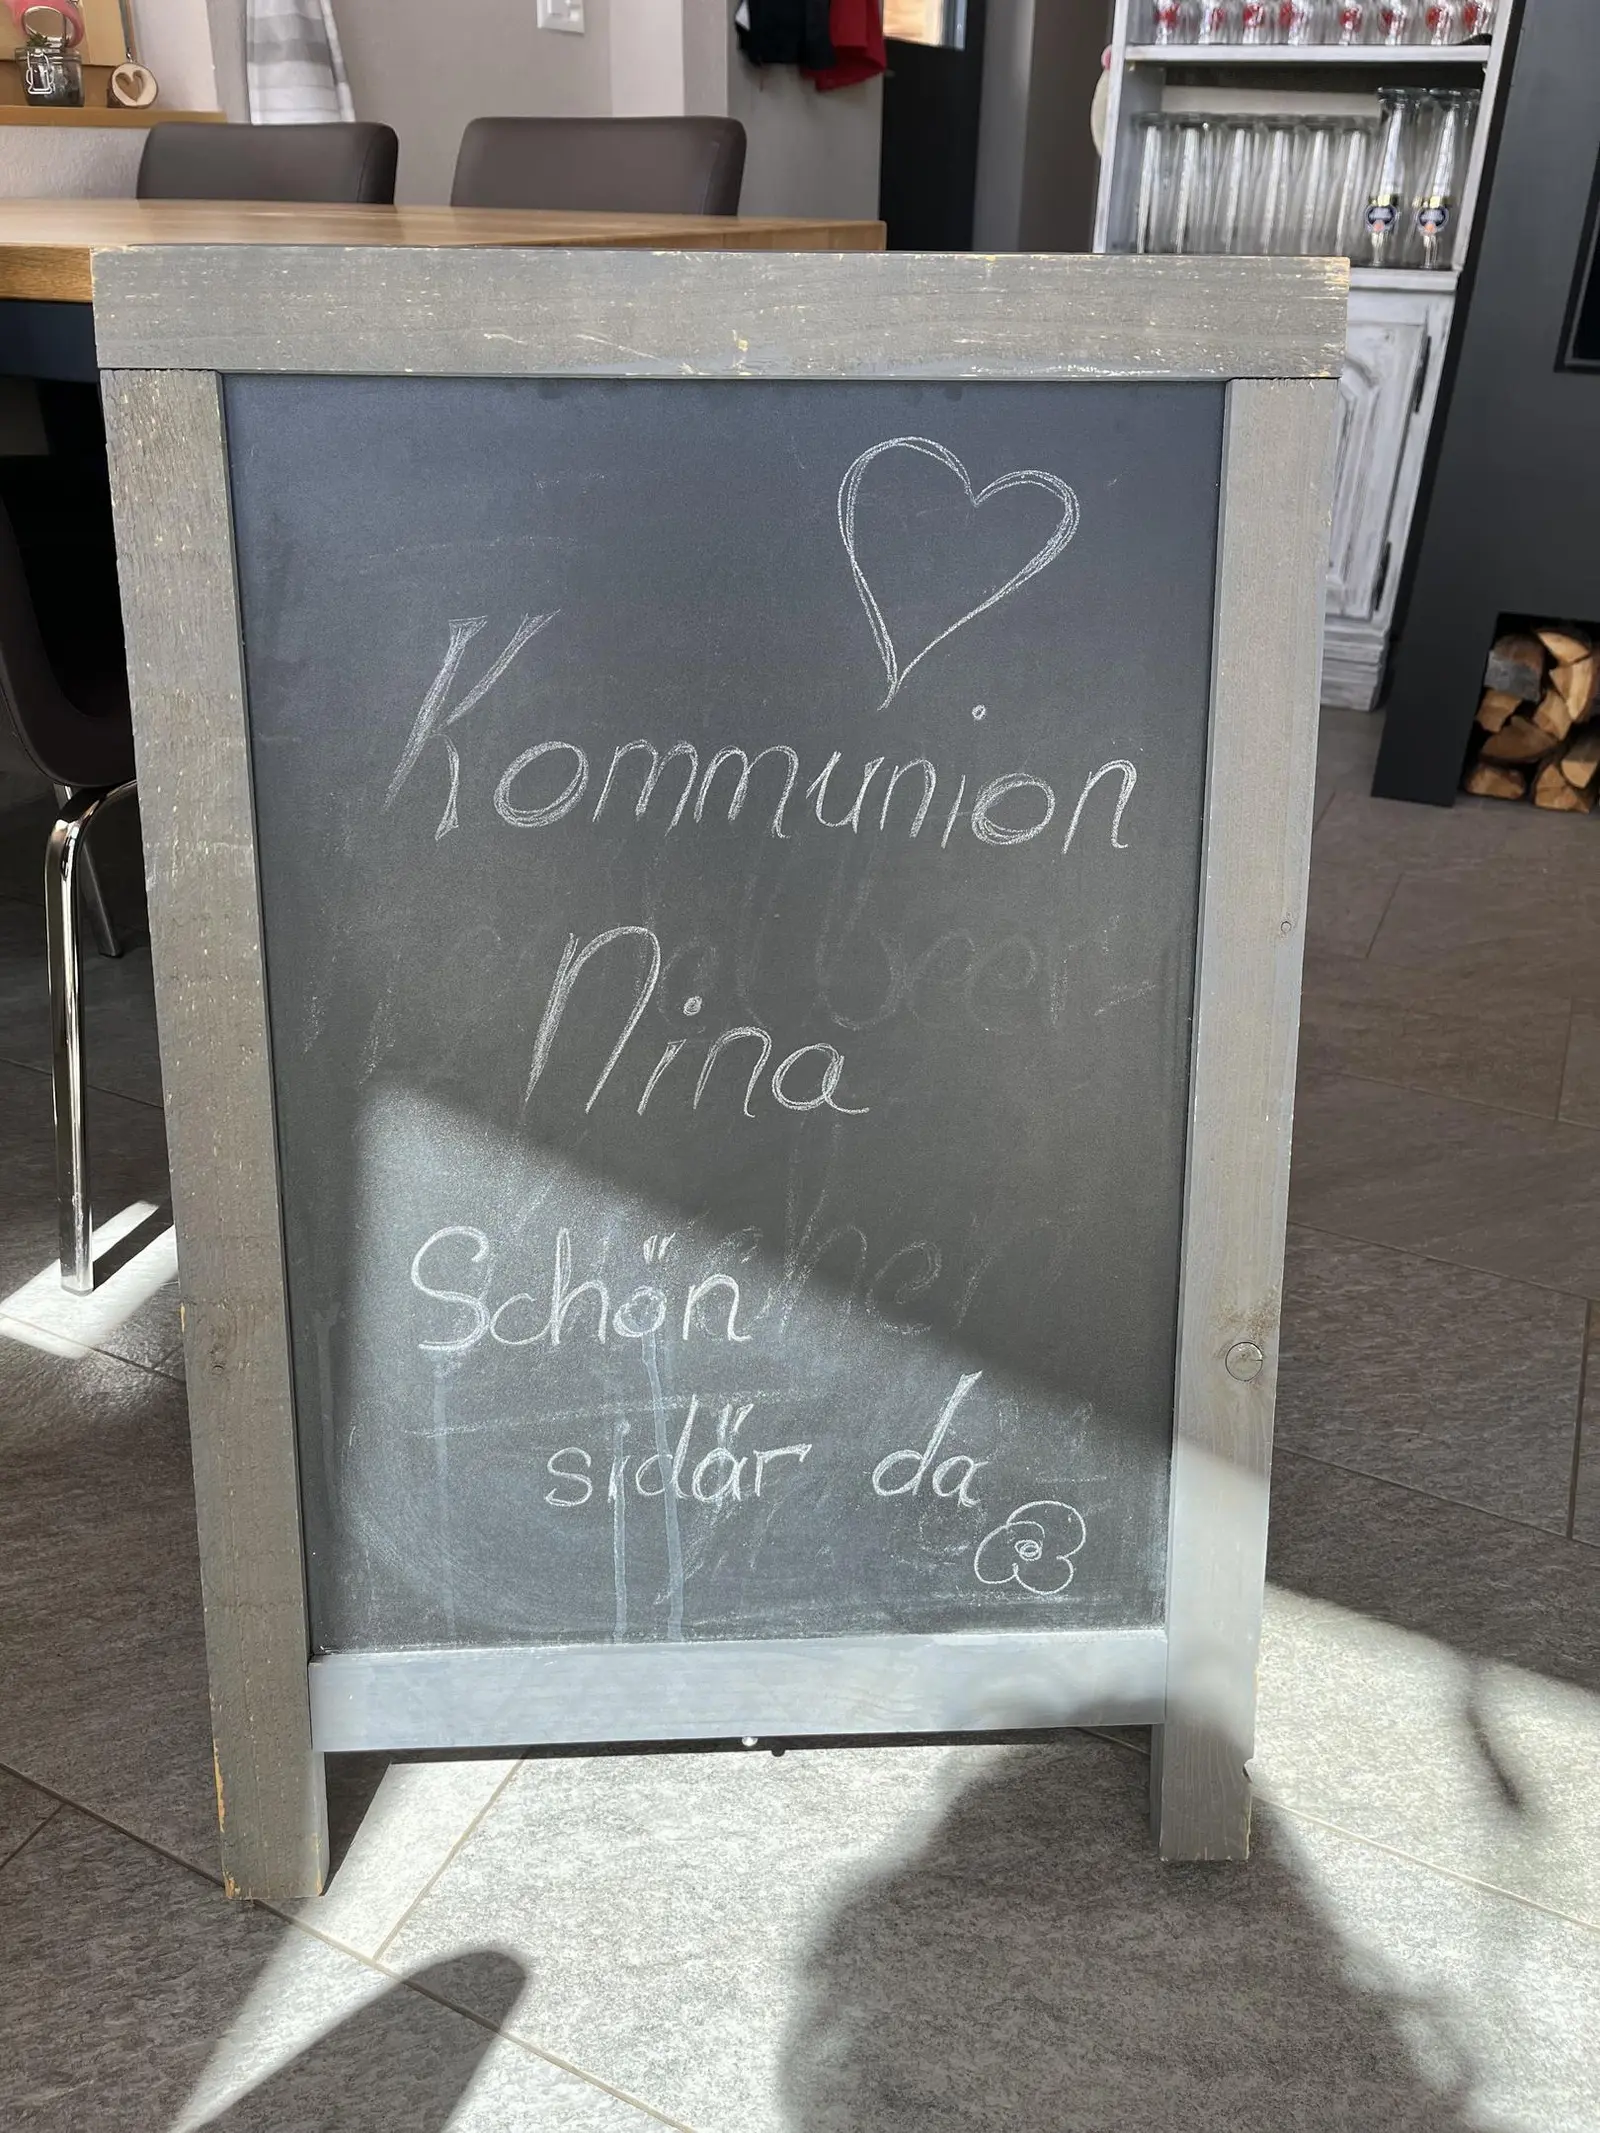 Kommunion
Nina
Schön
sidär da